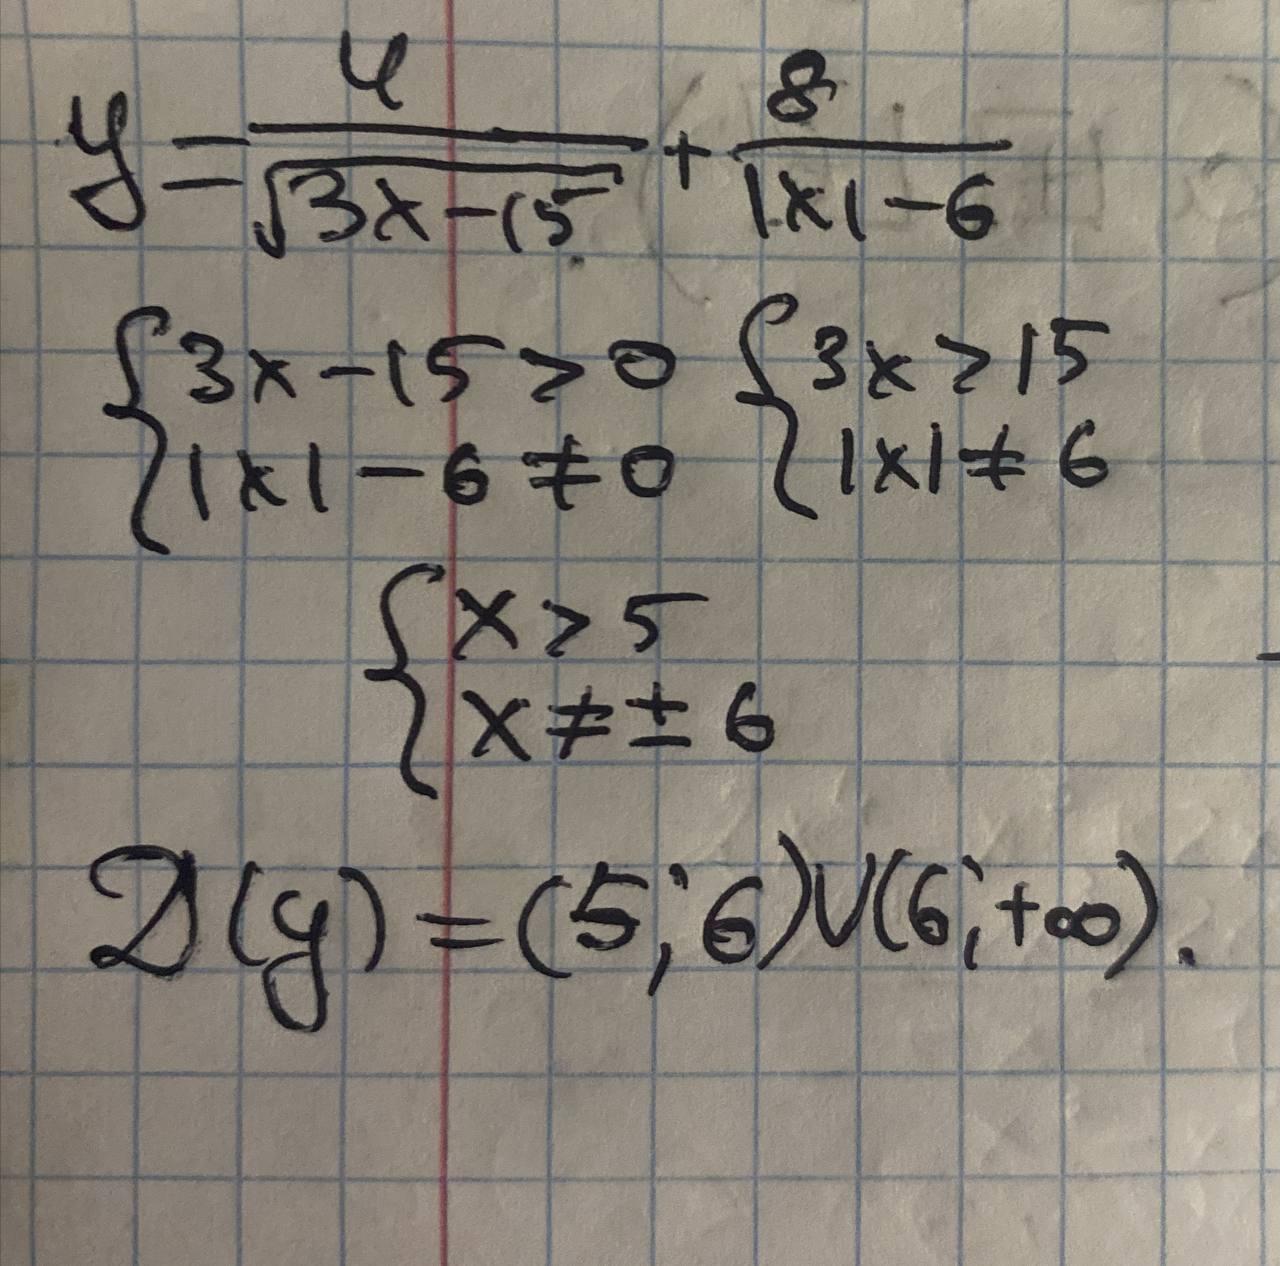 y = 4/√(3x-15) + 8/(|x|-6)
{3x-15>0 {3x>15
{|x|-6≠0 {|x|≠6
{x>5
{x≠±6
D(y)=(5;6)∪(6;+∞).